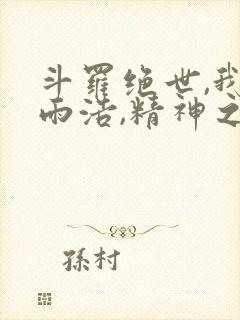 斗羅绝世,我
雨浩,精神之
孫村